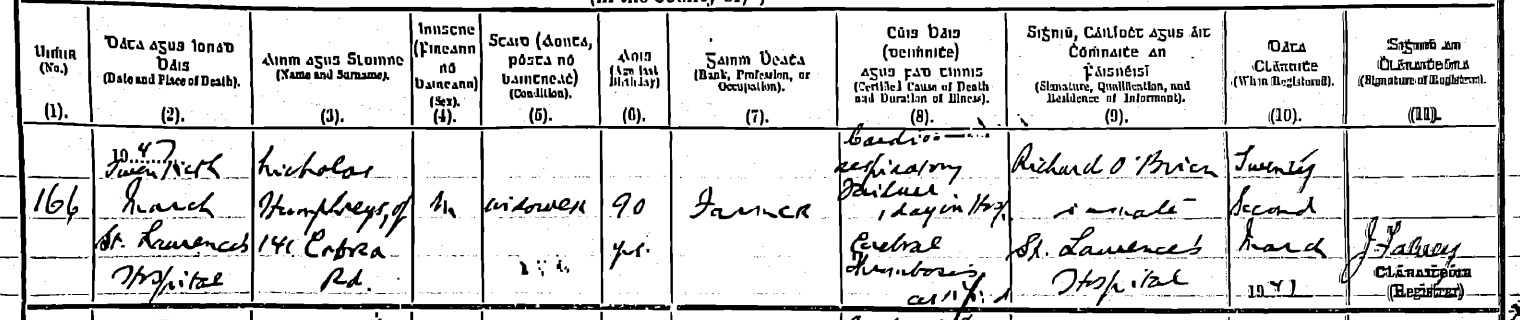 Uimhir
(No.)
(1).
Dáta agus Ionad
Báis
(Date and Place of Death).
(2).
Ainm agus Sloinne
(Name and Surname).
(3).
Inscne
(Fireann
nó
baineann)
(Sex).
(4).
Staid (Aonta,
pósta nó
baintreac)
(Condition).
(5).
Aois
(Age last
Birthday)
(6).
Gairm Beata
(Rank, Profession, or
Occupation).
(7).
Cúis Báis
(Deimhnite)
agus fad tinnis
(Certified Cause of Death
and Duration of Illness).
(8).
Sighniú, Cáilíoct agus áit
Comnaite an
Fáisnéisí
(Signature, Qualification, and
Residence of Informant).
(9).
Dáta
Cláraite
(When Registered).
(10).
Signiú an
Cláraiteóra
(Signature of Registrar).
(11).
166
1947
Twentieth
March
St. Laurence's
Hospital
Nicholas
Humphreys, of
141 Cabra
Rd.
M
widower
90
yrs.
Farmer
Cardio-
respiratory
Failure
1 day in Hosp.
Cerebral
Thrombosis
certified
Richard O'Brien
inmate
St. Laurence's
Hospital
Twenty
Second
March
1947
J Falvey
Cláraiteóir
(Registrar)